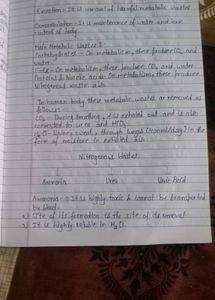 Excretion - It is removal of harmful metabolic wastes
Osmoregulation - It is maintenance of water and ions
content of body.
Main Metabolic Wastes :-
Carbohydrates :- On metabolism, these produce CO₂ and
water.
Fats - On metabolism, these produce CO₂ and water
Proteins & Nucleic acids - On metabolism, these produce
Nitrogenous waste also.
In human body these metabolic wastes are removed as
follows -
CO₂ - During breathing, it is exhaled out and is also
converted to urea and
H₂O - Urine, sweat, through lungs (400ml/day) in the
form of moisture in exhaled air.
Nitrogenous Wastes
Ammonia Urea Uric Acid
Ammonia - It is highly toxic & cannot be transported
by blood.
Site of its formation is the site of its removal
It is highly soluble in H₂O.